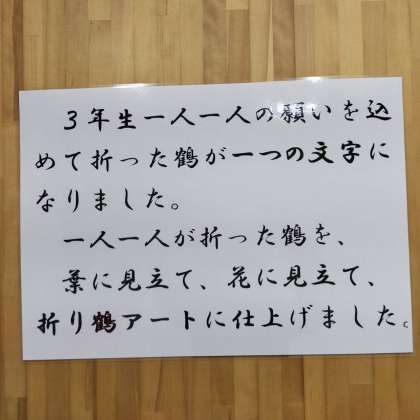 ３年生一人一人の願いを込
めて折った鶴が一つの文字に
なりました。
一人一人が折った鶴を、
葉に見立て、花に見立て、
折り鶴アートに仕上げました。